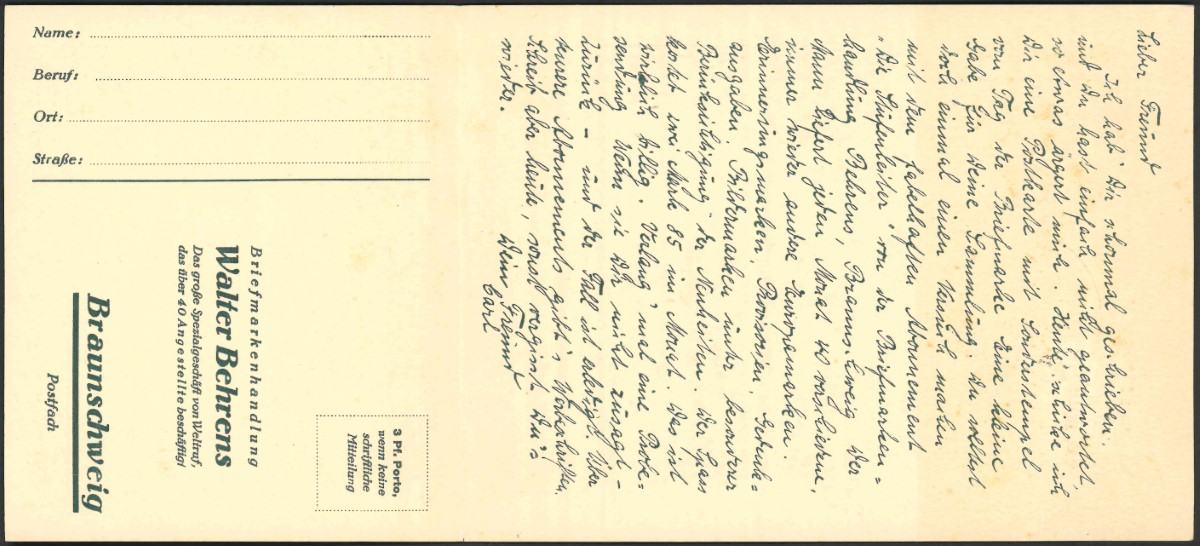 Name:
Beruf:
Ort:
Straße:
Briefmarkenhandlung
Walter Behrens
Das große Spezialgeschäft von Weltruf,
das über 40 Angestellte beschäftigt
Braunschweig
Postfach
3 Pf. Porto,
wenn keine
schriftliche
Mitteilung
Lieber Freund
Ich hab' Dir schonmal geschrieben
und Du hast einfach nicht geantwortet,
so etwas ärgert mich. Heut' schicke ich
Dir eine Postkarte mit Sonderstempel
vom Tag der Briefmarke. Eine kleine
Gabe für Deine Sammlung. Du solltest
doch einmal einen Versuch machen
mit dem fabelhaften Abonnement
"Die Stufenleiter" von der Briefmarken=
handlung Behrens, Braunschweig. Der
Mann liefert jeden Monat zu verschiedene,
immer wieder andere Europamarken.
Erinnerungsmarken, Provisorien, Gedenk=
ausgaben, Bildermarken unter besonderer
Berücksichtigung der Neuheiten. Der Spass
kostet zwei Mark 85 im Monat. Das ist
wirklich billig. Verlang' mal eine Probe=
sendung. Wenn sie Dir nicht zusagt -
zurück - und der Fall ist erledigt. Über
teurere Abonnements gibt's Werbeschriften.
Schreib aber heute, sonst vergisst Du's
wieder.
Dein Freund
Carl